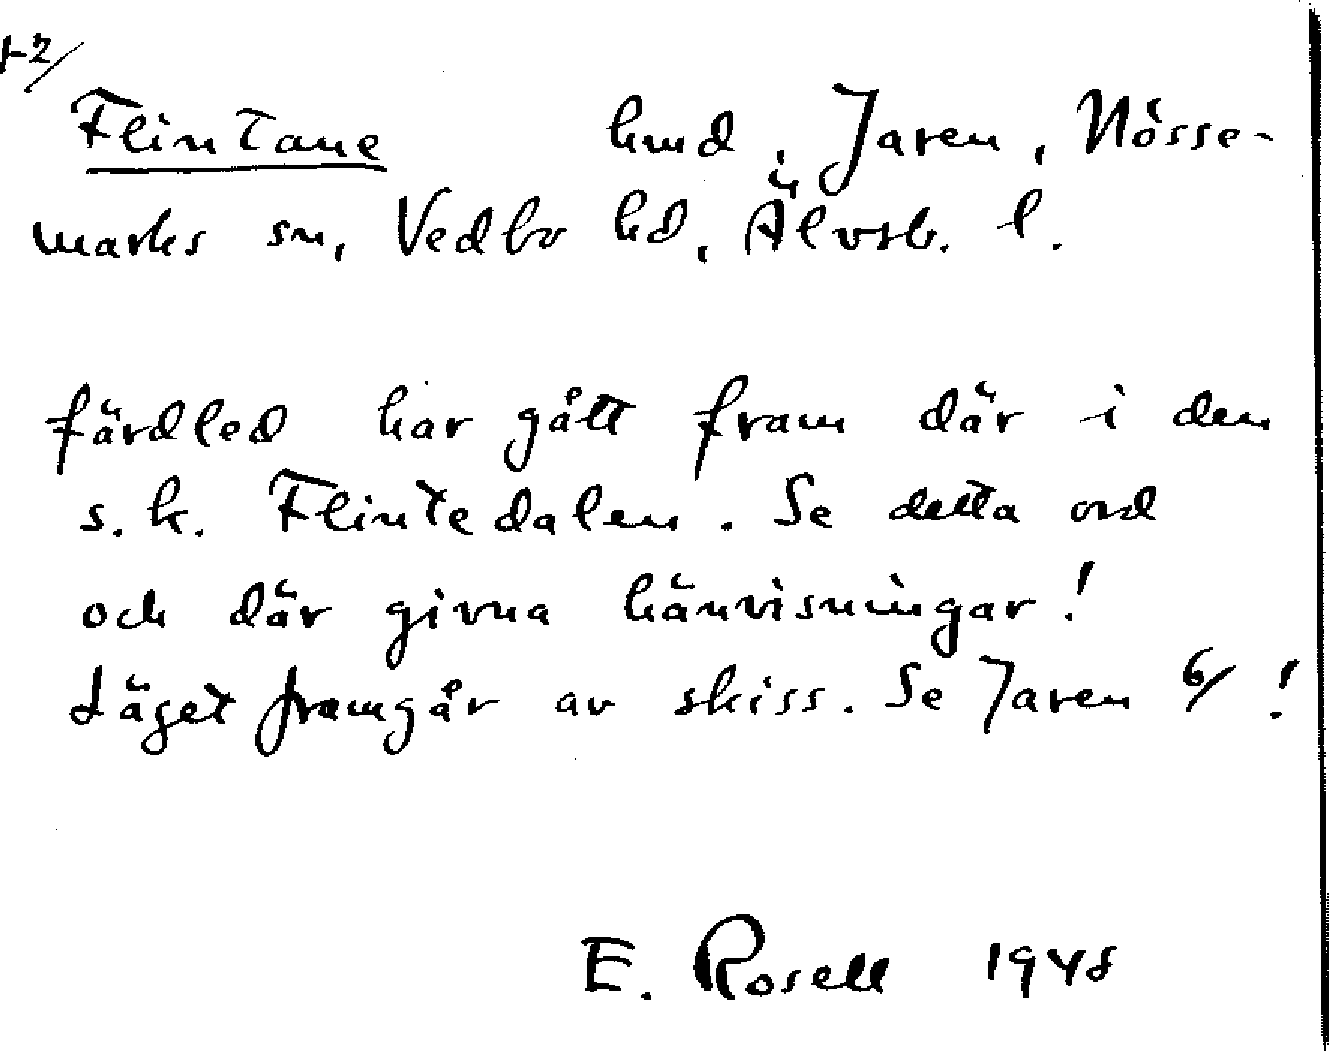 +2/
Flintane hmd, Jaren, Nösse-
marks sn, Vedbo hd, Älvsb. l.
färdled har gått fram där i den
s.k. Flintedalen. Se detta ord
och där givna hänvisningar!
Läget framgår av skiss. Se Jaren 6/ !
E. Rosell 1948